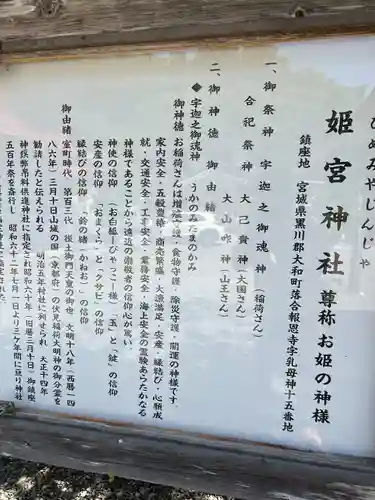 ひめみやじんじゃ
姫宮神社 尊称 お姫の神様
鎮座地 宮城県黒川郡大和町落合報恩寺字乳母神十五番地
一、御祭神 宇迦之御魂神 (稲荷さん)
合祀祭神 大己貴神(大国さん)
大山咋神(山王さん)
二、御神徳 御由緒
◆宇迦之御魂神 うかのみたまのかみ
御神徳 お稲荷さんは増
食物守護・除災守護・開運の神様です。
家内安全・五穀豊穣・商売繁盛・大漁満足・安産・縁結び・心願成
就・交通安全・工事安全・業務安全・海上安全の霊験あらたかなる
神様であることから遠近の崇敬者の信仰心が篤い。
神使の信仰 (お白狐=びゃっこ=様)「玉」と「鍵」の信仰
安産の信仰 「おまくら」と「クサビ」の信仰
縁結びの信仰 (鈴の緒・かねお)の信仰
御由緒 室町時代 第百三代 後土御門天皇の御世、文明十八年(西暦一四
八六年)三月十日山城の国(京都府)の伏見稲荷大明神の御分霊を
勧請したと伝えられる 明治五年村社に列せられ、大正十四年
神饌幣帛料供進神社に指定され昭和六十年(旧暦三月十日)御鎮座
五百年祭を斎行し、昭和六十二年七月一日より三ヶ年間に亘り神社